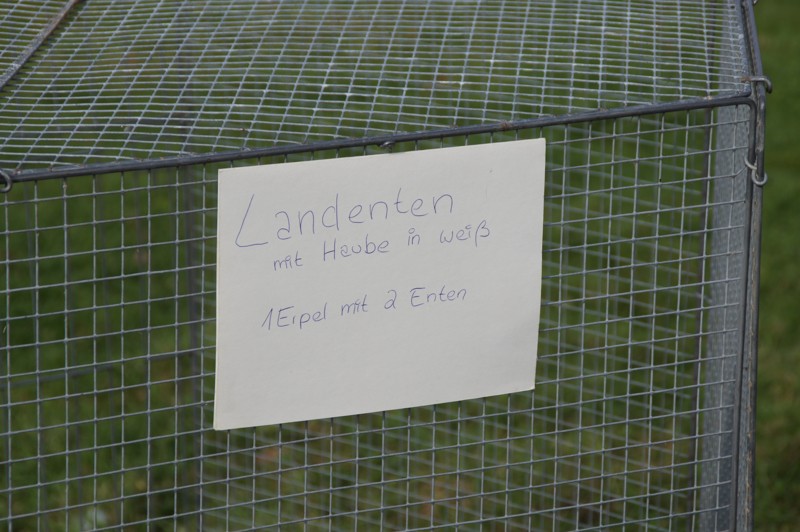 Landenten
mit Haube in weiß
1 Eipel mit 2 Enten